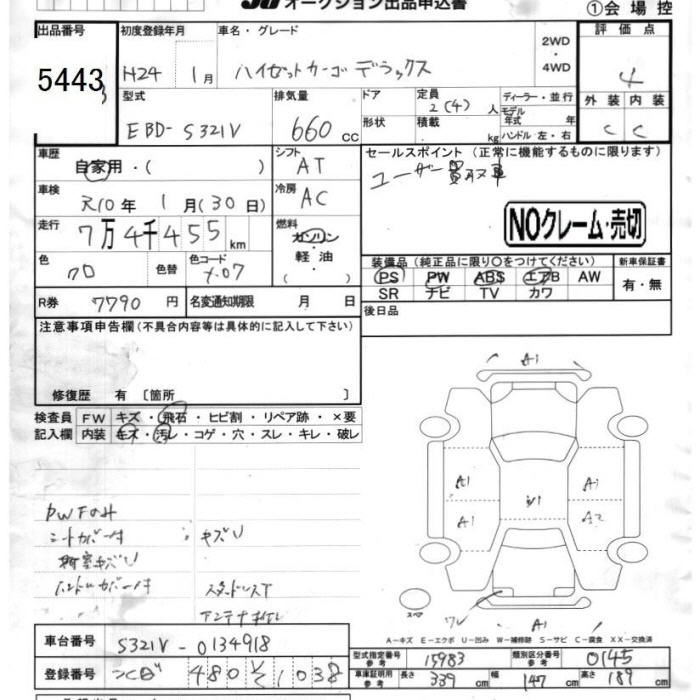 オークション出品申込書
①会場控
出品番号
5443
初度登録年月
H24 1月
車名・グレード
ハイゼットカーゴ デラックス
2WD
・
4WD
評価点
4
型式
EBD-S321V
排気量
660cc
ドア
形状
定員
2(4)人
積載
kg
ディーラー・並行
モデル
年式 年
ハンドル・左・右
外装
内装
C
C
車歴
自家用・( )
シフト
AT
セールスポイント (正常に機能するものに限ります)
ユーザー買取車
車検
R10年 1月(30日)
冷房
AC
走行
7万4千455km
燃料
ガソリン
軽油
( )
NOクレーム・売切
色
クロ
色替
色コード
X07
装備品(純正品に限り○をつけてください)
PS PW ABS エアB AW
SR ナビ TV カワ
新車保証書
有・無
R券
7790円
名変通知期限 月 日
後日品
注意事項申告欄(不具合内容等は具体的に記入して下さい)
修復歴 有〔箇所 〕
検査員
記入欄
FW キズ・飛石・ヒビ割・リペア跡・×要
内装 キズ・汚レ・コゲ・穴・スレ・キレ・破レ
PWFのみ
シートカバー付
キズU
荷室キズU
ハンドルカバー付
スタッドレスT
A1
A1
A1
A1
A2
スペア
A1
A-キズ E-エクボ U-凹み W-補修跡 S-サビ C-腐食 XX-交換済
車台番号
S321V-0134918
型式指定番号
参考
15983
類別区分番号
参考
0145
登録番号
480
1038
車庫証明用
参考
長さ
339cm
幅
147cm
高さ
189cm